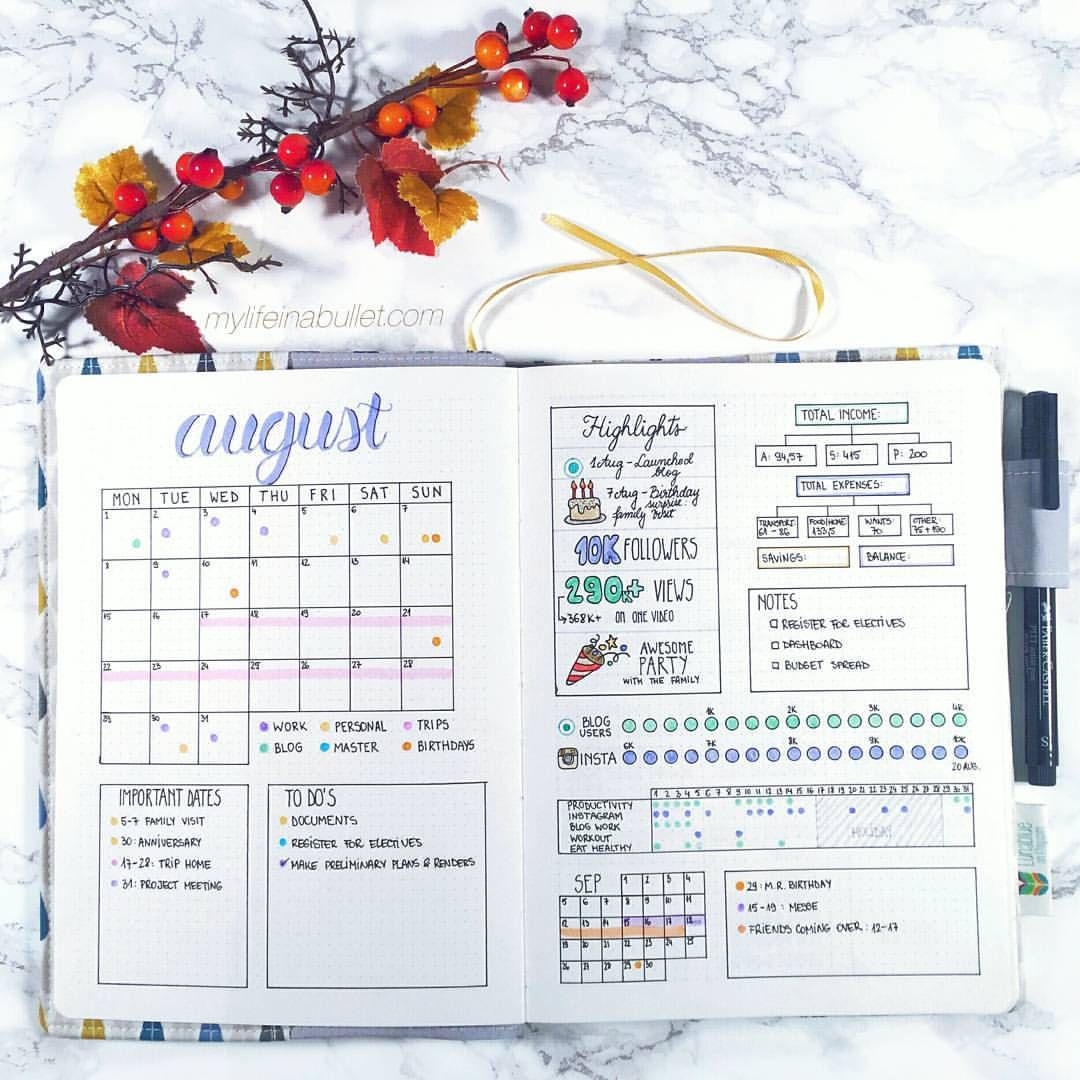 mylifeinabullet.com
august
MON TUE WED THU FRI SAT SUN
1 2 3 4 5 6 7
8 9 10 11 12 13 14
15 16 17 18 19 20 21
22 23 24 25 26 27 28
29 30 31
WORK PERSONAL TRIPS
BLOG MASTER BIRTHDAYS
IMPORTANT DATES
5-7 FAMILY VISIT
30: ANNIVERSARY
17-28: TRIP HOME
31: PROJECT MEETING
TO DO'S
DOCUMENTS
REGISTER FOR ELECTIVES
MAKE PRELIMINARY PLANS & RENDERS
Highlights
1 Aug - Launched
blog
7 Aug - Birthday
surprise:
family visit
10K FOLLOWERS
290K+ VIEWS
368K+ ON ONE VIDEO
AWESOME
PARTY
WITH THE FAMILY
TOTAL INCOME:
A: 94,57 S: 415 P: 200
TOTAL EXPENSES:
TRANSPORT: FOOD/HOME: WANTS: OTHER:
61-86 133,5 70 75+190
SAVINGS: BALANCE:
NOTES
REGISTER FOR ELECTIVES
DASHBOARD
BUDGET SPREAD
1K 2K 3K 4K
BLOG
USERS
6K 7K 8K 9K 10K
INSTA
20 AUG.
1 2 3 4 5 6 7 8 9 10 11 12 13 14 15 16 17 18 19 20 21 22 23 24 25 26 27 28 29 30 31
PRODUCTIVITY
INSTAGRAM
BLOG WORK
WORKOUT
EAT HEALTHY
HOLIDAY
SEP
1 2 3 4
5 6 7 8 9 10 11
12 13 14 15 16 17 18
19 20 21 22 23 24 25
26 27 28 29 30
29: M.R. BIRTHDAY
15-19: MESSE
FRIENDS COMING OVER: 12-17
FABER-CASTELL
S